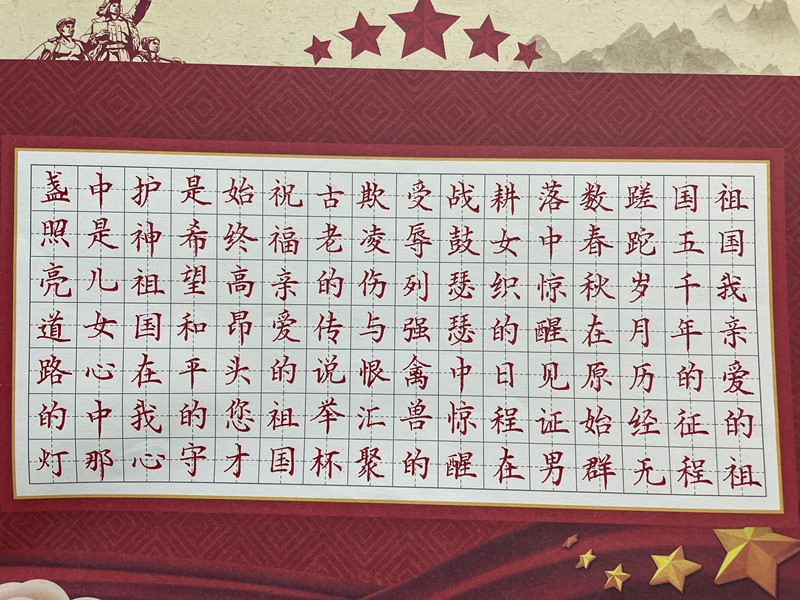 祖国我亲爱的祖
国五千年的征程
蹉跎岁月历经无
数春秋在原始群
落中惊醒见证男
耕女织的日程在
战鼓瑟瑟中惊醒
受辱列强禽兽的
欺凌伤与恨汇聚
古老的传说举杯
祝福亲爱的祖国
始终高昂头您才
是希望和平的守
护神祖国在我心
中是儿女心中那
盏照亮道路的灯